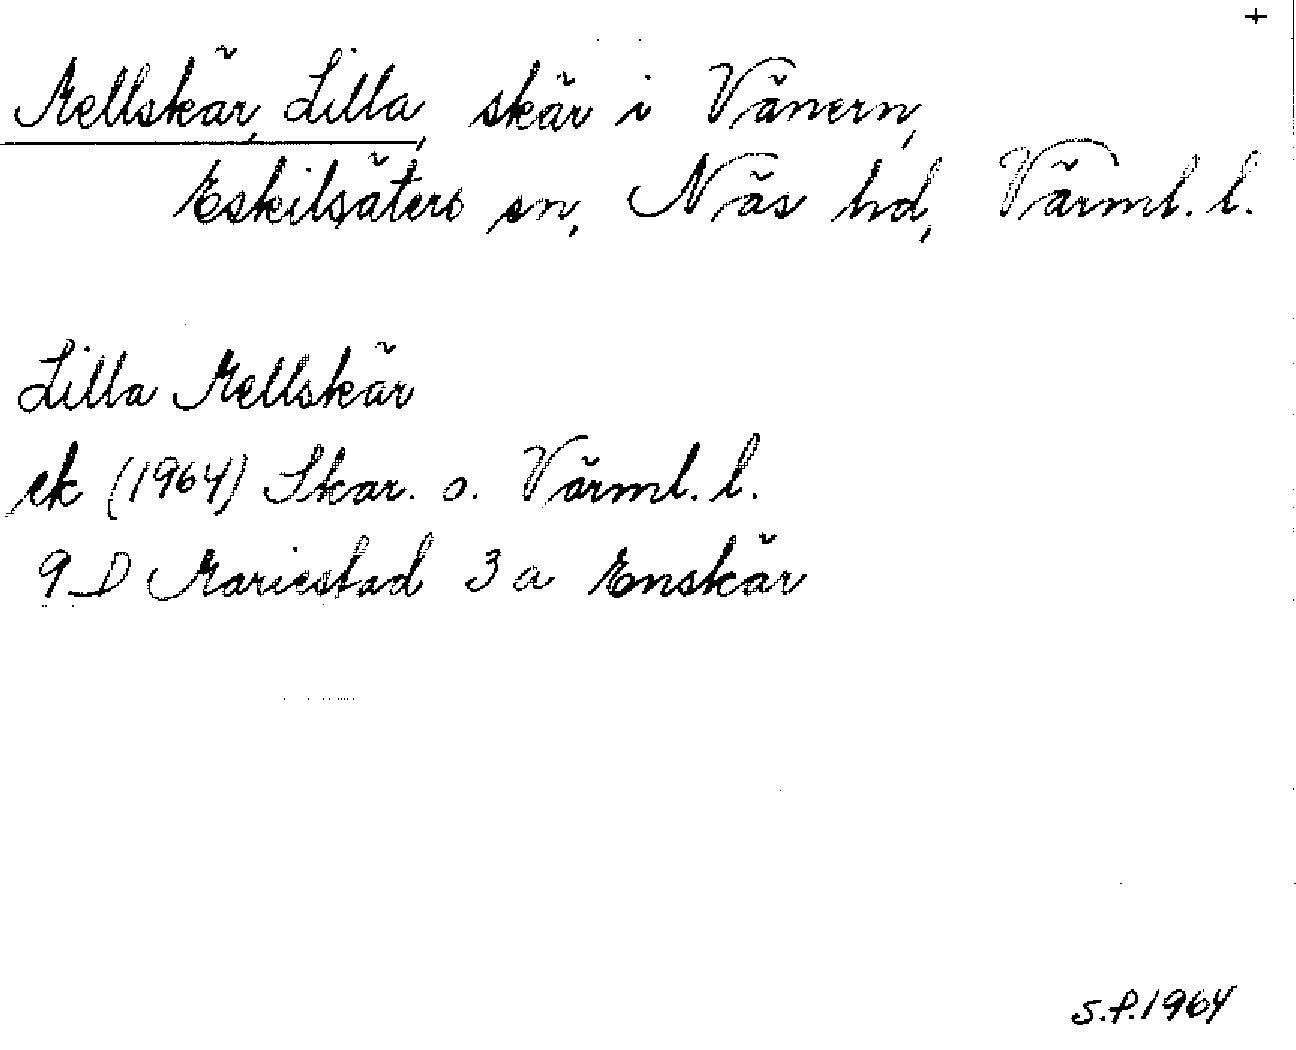 +
Mellskär, Lilla, skär i Vänern,
Eskilsäters sn, Näs hd, Värml. l.
Lilla Mellskär
ek (1964) Skar. o. Värml. l.
9 D Mariestad 3 a Enskär
S.P. 1964